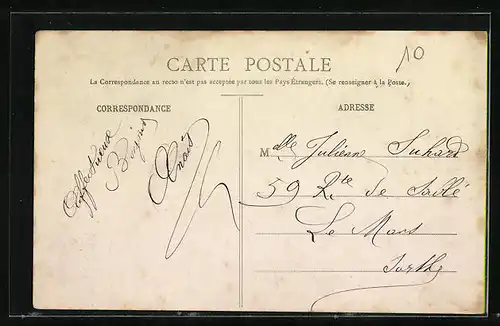 10
CARTE POSTALE
La Correspondance au recto n'est pas acceptée par tous les Pays Étrangers. (Se renseigner à la Poste.)
CORRESPONDANCE
ADRESSE
Affectueux
Baisers
Anaïs
Mlle Julienne Suhard
59 Rte de Sablé
Le Mans
Sarthe